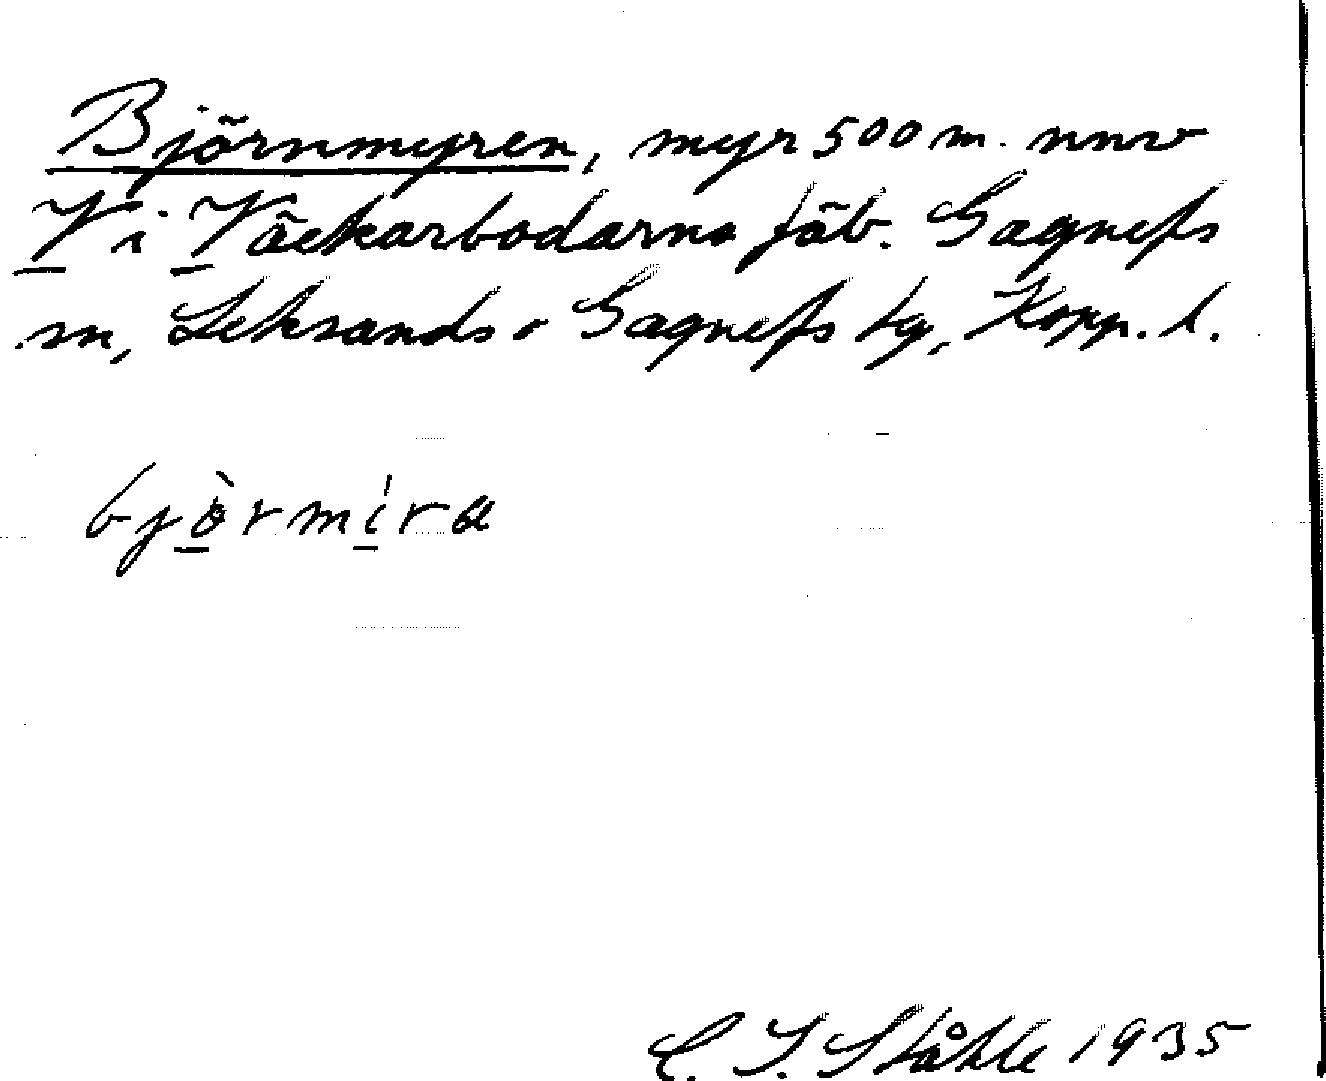 Björnmyren, myr 500 m. nnv
V i Väckarbodarna fäb. Gagnefs
sn, Leksands o Gagnefs tg, Kopp. l.
bjòrmíra
C. I. Ståhle 1935